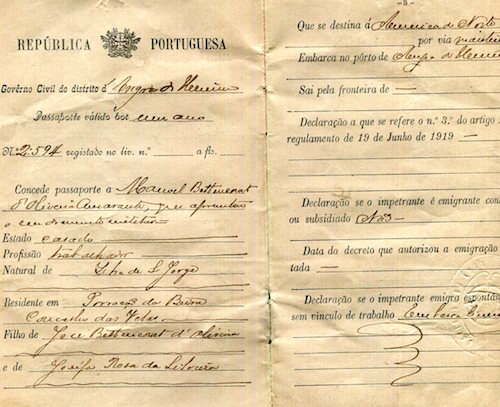 REPÚBLICA PORTUGUESA
Govêrno Civil do distrito d Angra do Heroismo
Passaporte válido por um ano
N.º 2:594 registado no liv. n.º — a fls.
Concede passaporte a Manoel Bettencourt
d'Oliveira Amarante, que apresentou
o seu documento militar
Estado casado
Profissão trabalhador
Natural de Ilha de S. Jorge
Residente em Terreiros da Beira
Concelho das Velas
Filho de José Bettencourt d'Oliveira
e de Josefa Rosa da Silveira
-3-
Que se destina á America do Norte
por via maritima
Embarca no pôrto de Angra do Heroismo
Sai pela fronteira de —
Declaração a que se refere o n.º 3.º do artigo
regulamento de 19 de Junho de 1919 —
Declaração se o impetrante é emigrante con
ou subsidiado Não
Data do decreto que autorizou a emigração
tada —
Declaração se o impetrante emigra espontân
sem vínculo de trabalho